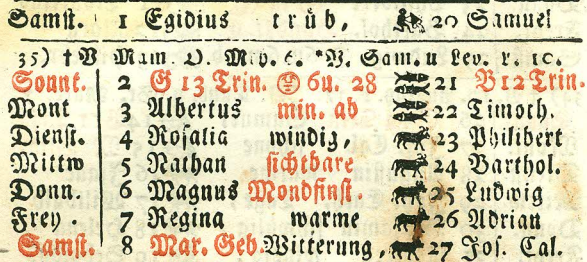 Samst. 1 Egidius trüb, 20 Samuel
35) † V Mam. O. Mtb. 6. *V. Sam. u Lev. L. 10.
Sonnt. 2 G 13 Trin. 6 u. 28 21 B 12 Trin.
Mont 3 Albertus min. ab 22 Timoth.
Dienst. 4 Rosalia windig, 23 Philibert
Mittw 5 Nathan sichtbare 24 Barthol.
Donn. 6 Magnus Mondfinst. 25 Ludwig
Frey. 7 Regina warme 26 Adrian
Samst. 8 Mar. Geb. Witterung, 27 Jos. Cal.